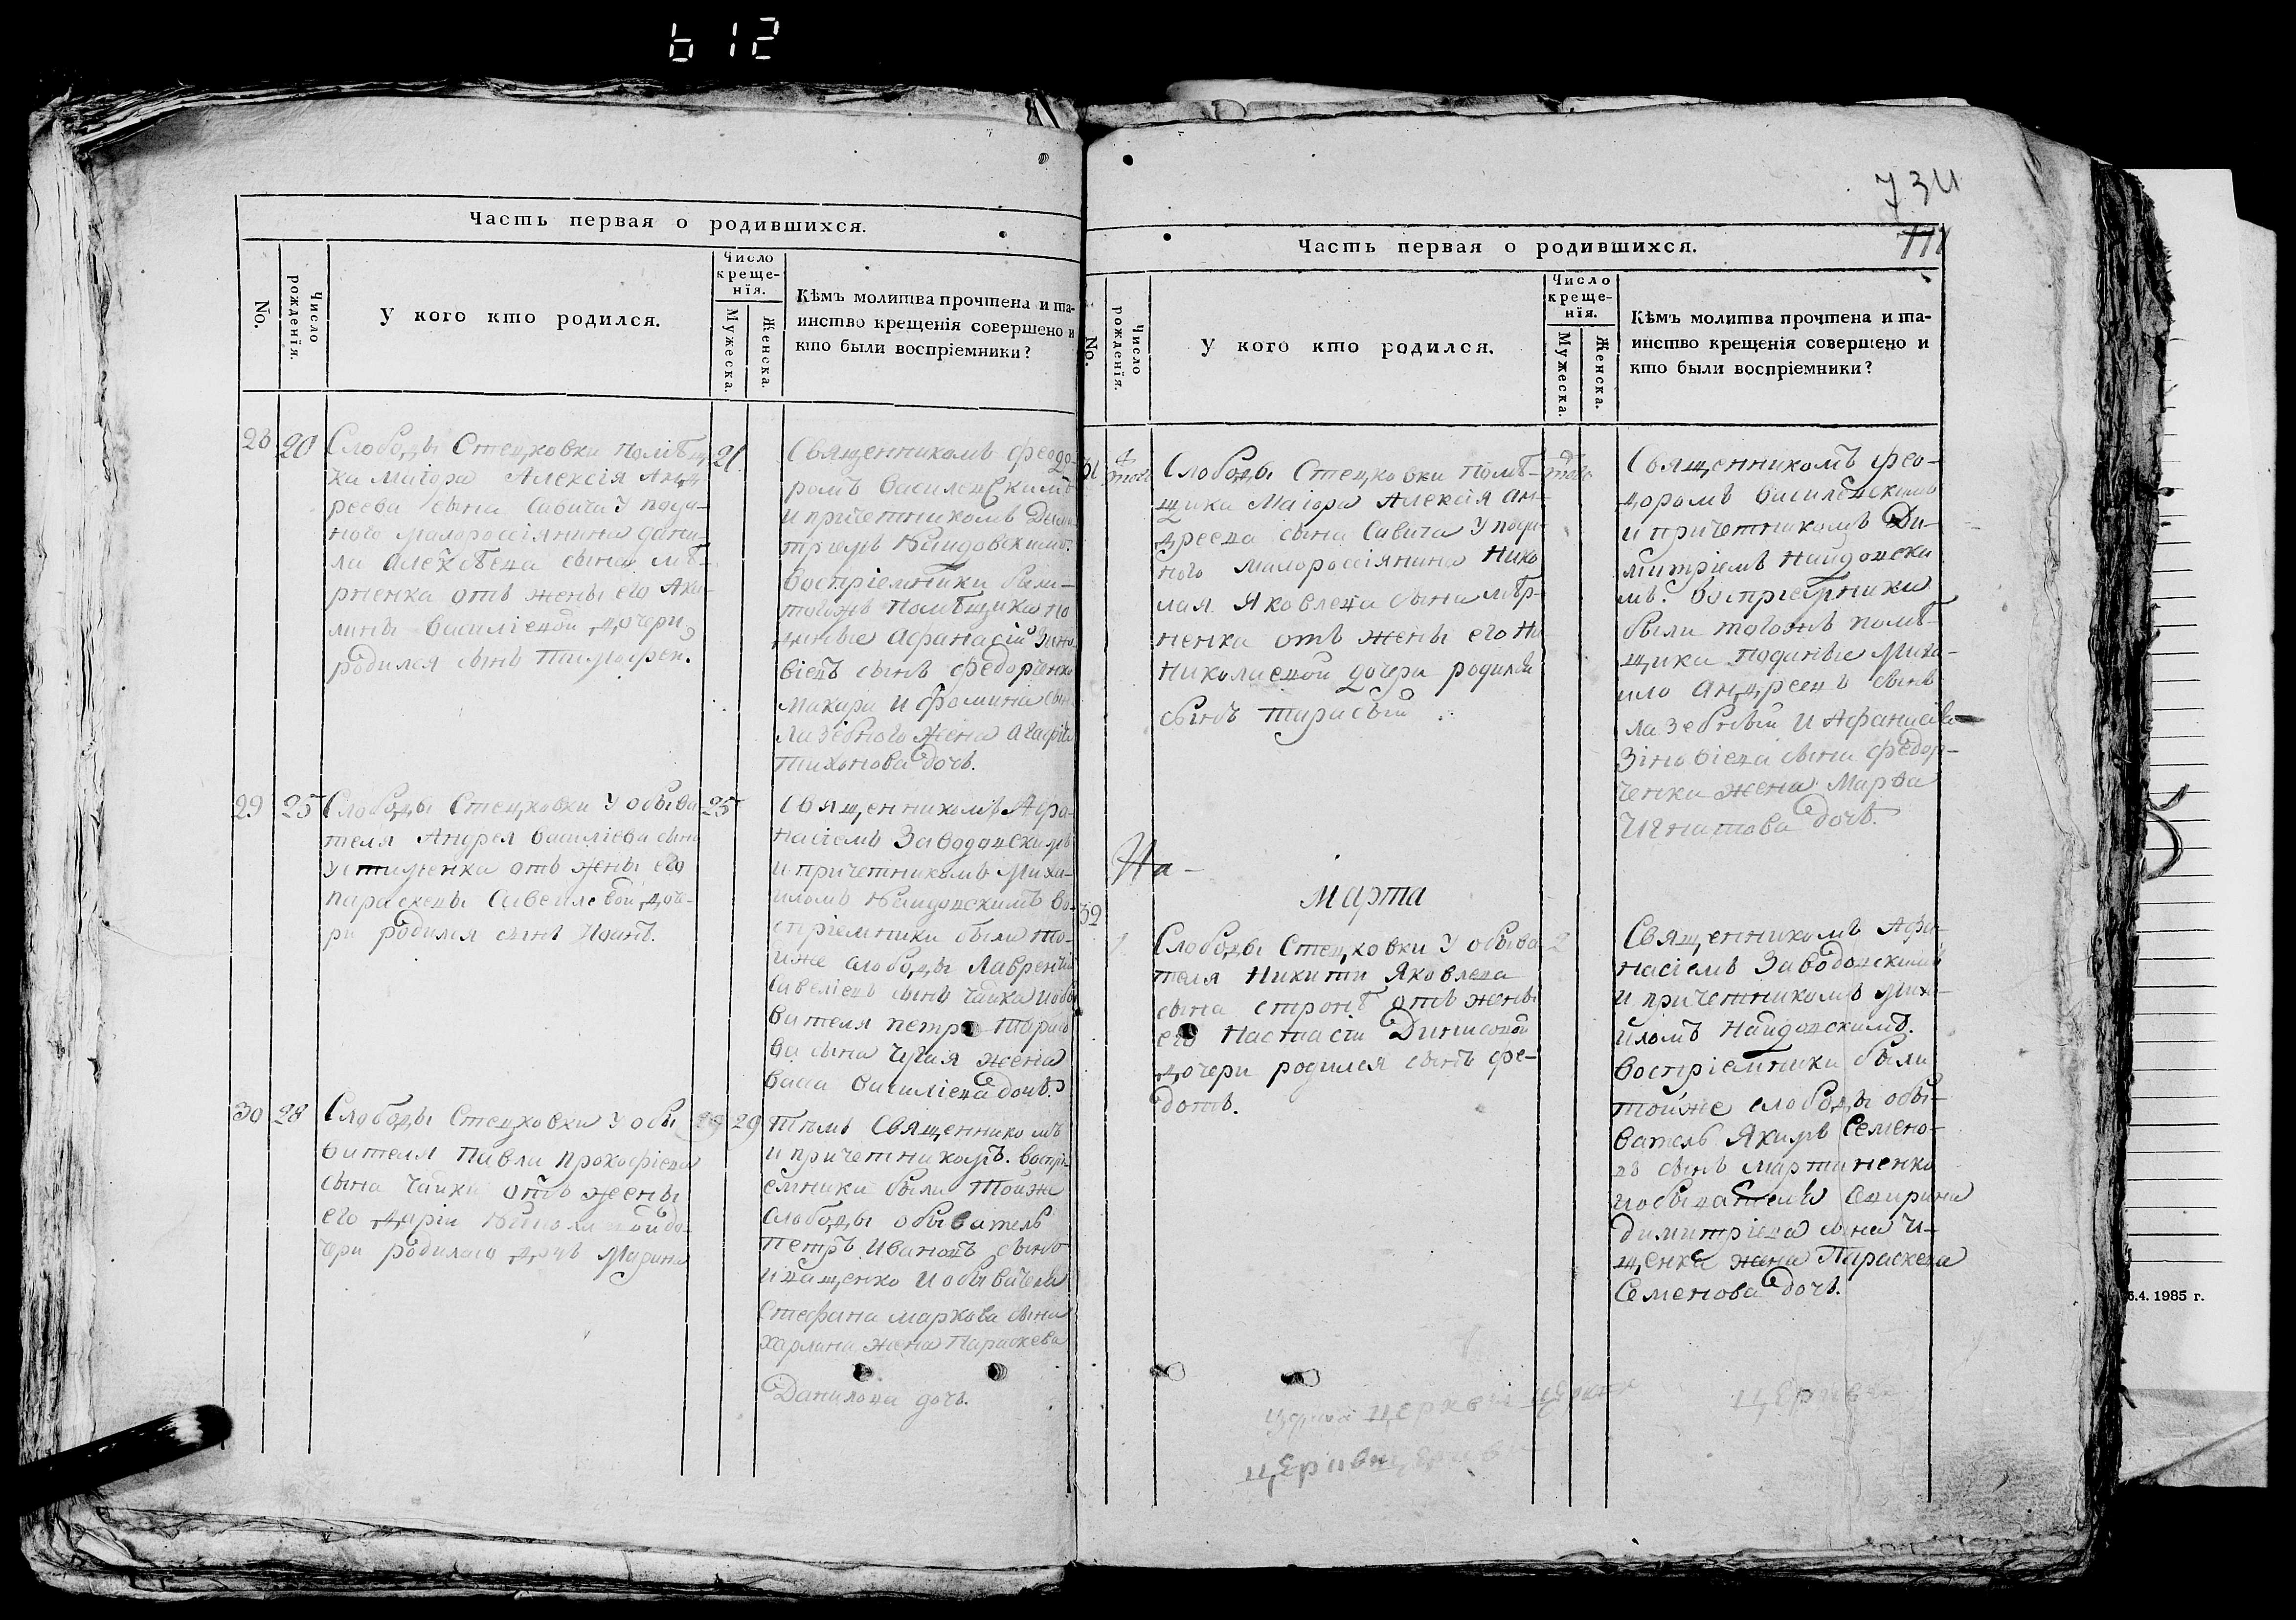 612
Часть первая о родившихся.
No.
Число рожденїя.
У кого кто родился.
Число
креще-
нїя.
Мужеска.
Женска.
Кѣмъ молитва прочтена и та-
инство крещенїя совершено и
кто были воспрїемники?
28 20 Слободы Стецковки помѣщ
ка Маіора Алексія Анд
реева сына Савича у подда
ного малороссіянина Дани-
ли
отъ жены его Аку
лины Василіевой дочери
родился сынъ Тимофей.
21
Священникомъ Феодо
ромъ Василевскимъ
и причетникомъ Дими
тріемъ Найдовскимъ.
Воспріемники были
тогожъ помѣщика по
даные Афанасій Зино
віевъ сынъ Федорченко
Макара и Фомина сын
Лазебного жена Агафія
Тихонова дочь.
29 25 Слободы Стецковки у обыва
теля Андрея Василіева сына
Устименка отъ жены его
Параскевы Савеліевой доч-
ри родился сынъ Иоанъ.
25
Священникомъ Афа
насіемъ Заводовскимъ
и причетникомъ Миха-
иломъ Найдовскимъ во-
спріемники были то-
йже слободы Лаврентій
Савеліевъ сынъ Чайка и обы
вателя Петра Тарасо
ва сына Чугая жена
Васа Василіева дочь.
30 28 Слободы Стецковки у обы
вателя Павла Прокофіева
сына Чайки отъ жены
его Даріи до-
чери родилась дочь Марина
29 29
Тѣмъ Священникомъ
и причетникомъ. воспрі-
емники были тойже
слободы обыватель
Петръ Ивановъ сынъ
Иващенко и обывателя
Стефана Маркова сына
Харлана жена Параскева
Данилова дочь.
734
711
Часть первая о родившихся.
No.
Число рожденїя.
У кого кто родился.
Число
креще-
нїя.
Мужеска.
Женска.
Кѣмъ молитва прочтена и та-
инство крещенїя совершено и
кто были воспрїемники?
31
Слободы Стецковки помѣ-
щика Маіора Алексія Ан-
дреева сына Савича у пода
ного малороссіянина Нико
лая Яковлева сына
отъ жены его
Николаевой дочери родился
сынъ Тарасій
Священникомъ Фео-
доромъ Василевскимъ
и причетникомъ Ди-
митріемъ Найдовски
мъ. Воспріемники
были тогожъ помѣ-
щика поданые Миха-
ило Андреевъ сынъ
Лазебный и Афанасіа
Зіновіева сына Федор-
ченка жена Марфа
Игнатова дочь.
На -
Марта
32
1 Слободы Стецковки у обыва
теля Никити Яковлева
сына отъ жены
его Настасіи Динисовой
дочери родился сынъ Фе-
дотъ.
2
Священникомъ Афа-
насіемъ Заводовскимъ
и причетникомъ Миха-
иломъ Найдовскимъ.
Воспріемники были
тойже слободы обы-
ватель Якимъ Семено-
въ сынъ Мартиненко
и обывателя Спирина
Димитріева сына И-
щенка жена Параскева
Семенова дочь.
6.4. 1985 г.